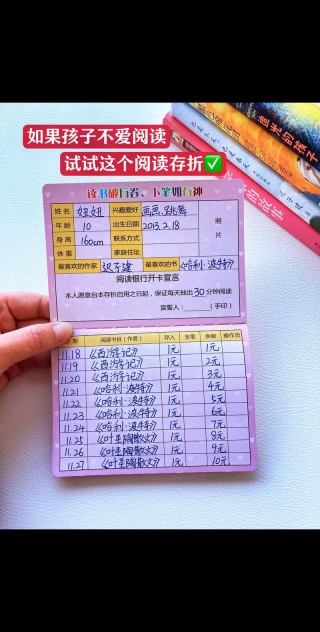 如果孩子不爱阅读
试试这个阅读存折✅
读书破万卷、下笔如有神
姓名 妞妞 兴趣爱好 画画、跳舞
年龄 10 出生日期 2013.2.18
身高 160cm 联系方式
体重 家庭住址
照片
最喜欢的作家 迟子建 最喜欢的书 《哈利·波特》
阅读银行开卡宣言
本人愿意自本存折启用之日起，保证每天抽出30分钟阅读
宣誓人：______(手印)
日期 阅读书目(作者) 存入 支取 余额 操作员
11.18 《西游记》 1元 1元
11.19 《西游记》 1元 2元
11.20 《西游记》 1元 3元
11.21 《哈利·波特》 1元 4元
11.22 《哈利·波特》 1元 5元
11.23 《哈利·波特》 1元 6元
11.24 《哈利·波特》 1元 7元
11.25 《叶圣陶散文》 1元 8元
11.26 《叶圣陶散文》 1元 9元
11.27 《叶圣陶散文》 1元 10元